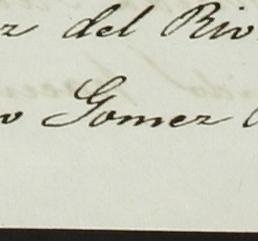 z del Riv
o Gomez